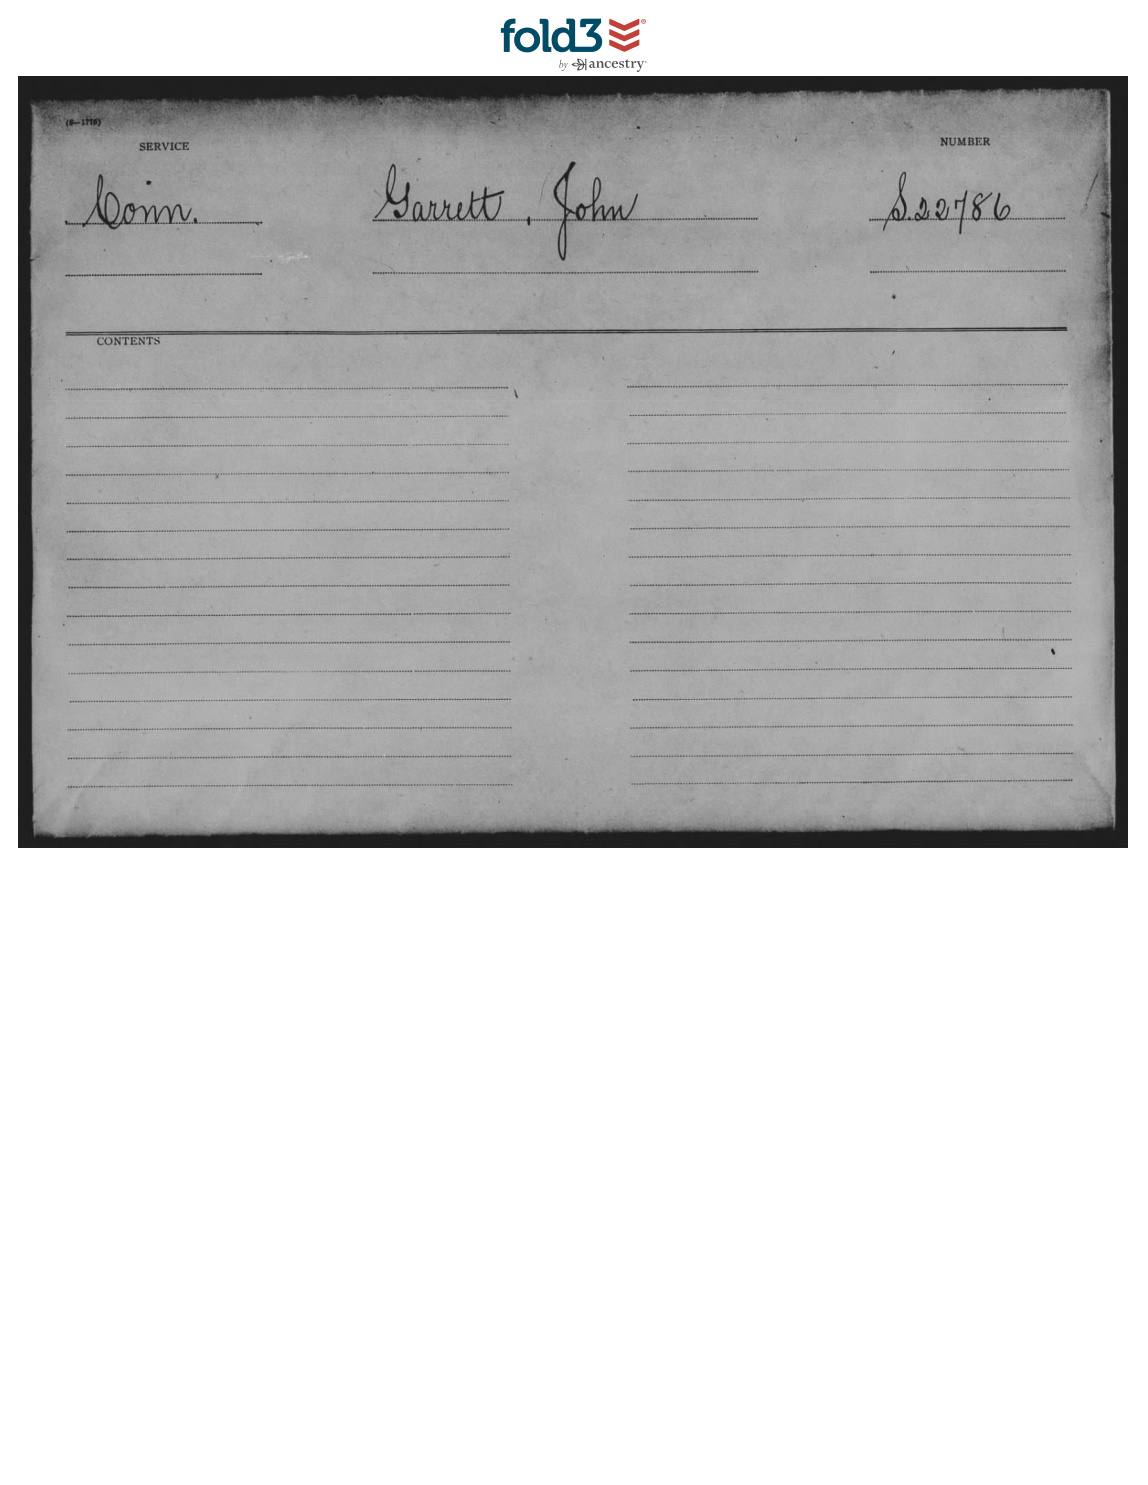 fold3
by ancestry
(6—1776)
SERVICE
NUMBER
Conn.
Garrett, John
S.22786
CONTENTS